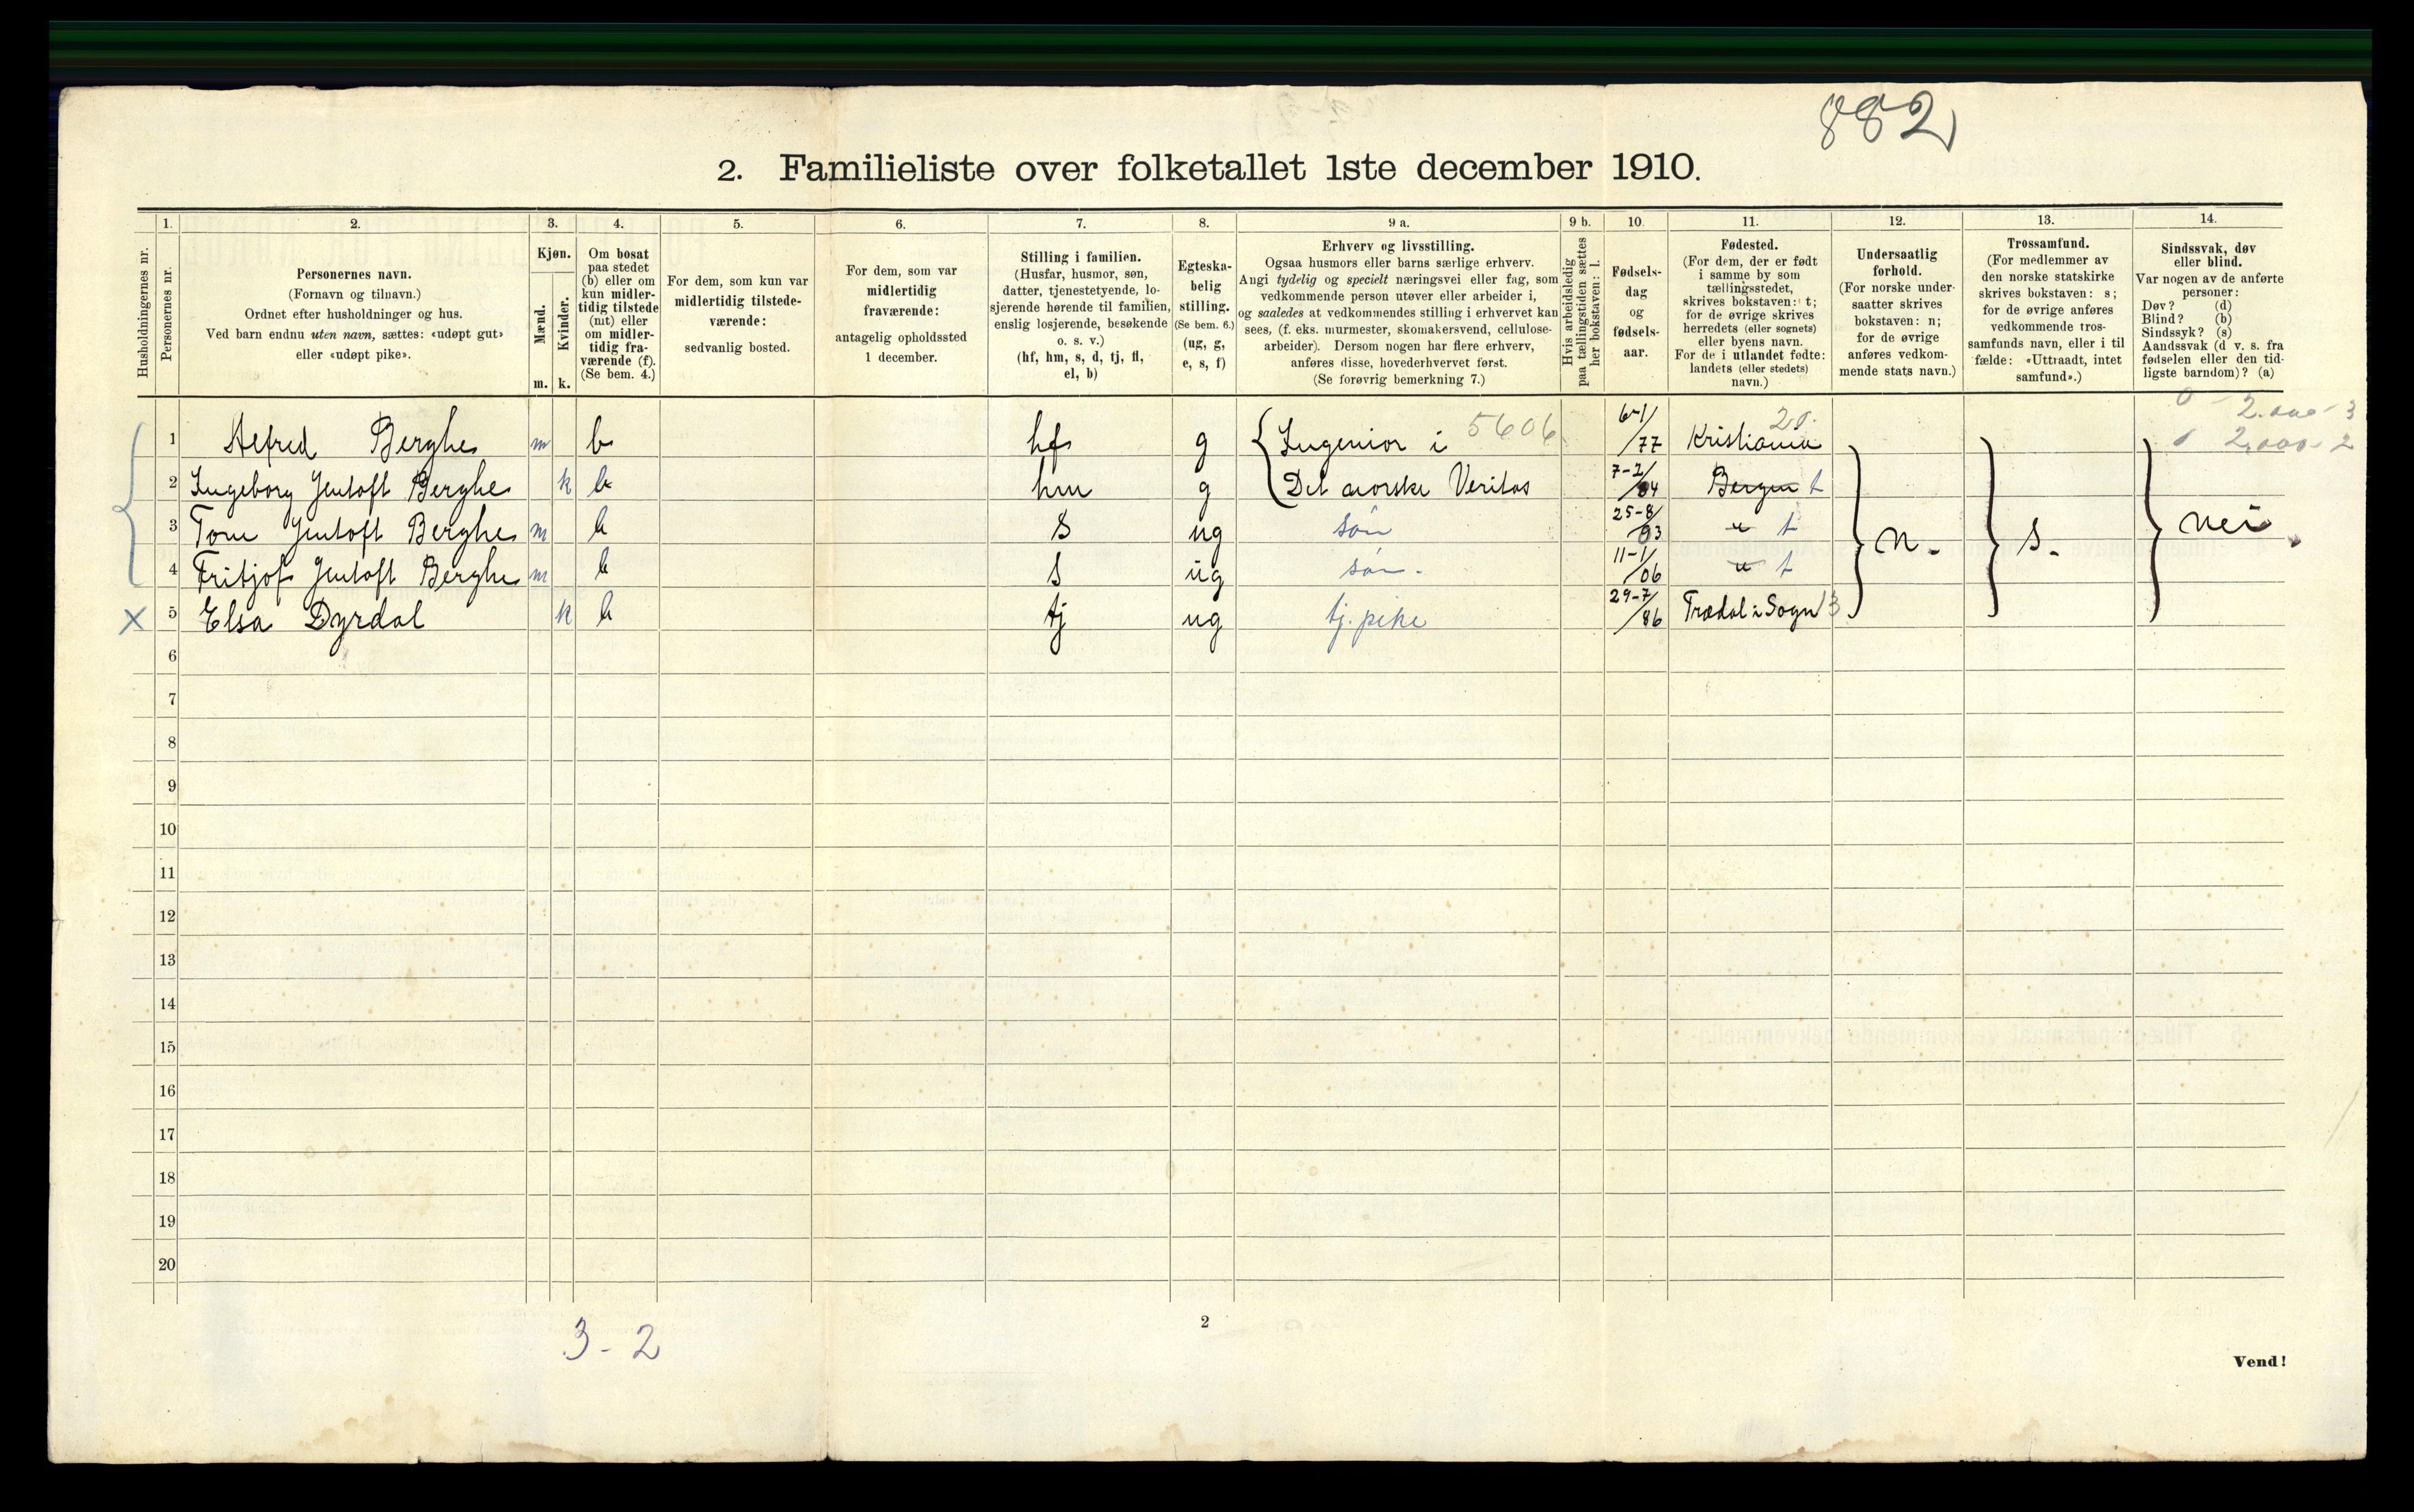 882
2. Familieliste over folketallet 1ste december 1910.
Husholdningernes nr.
1. Personernes nr.
2. Personernes navn.
(Fornavn og tilnavn.)
Ordnet efter husholdninger og hus.
Ved barn endnu uten navn, sættes: «udøpt gut»
eller «udøpt pike».
3. Kjøn.
Mænd. Kvinder.
m. k.
4. Om bosat
paa stedet
(b) eller om
kun midler-
tidig tilstede
(mt) eller
om midler-
tidig fra-
værende (f).
(Se bem. 4.)
5. For dem, som kun var
midlertidig tilstede-
værende:
sedvanlig bosted.
6. For dem, som var
midlertidig
fraværende:
antagelig opholdssted
1 december.
7. Stilling i familien.
(Husfar, husmor, søn,
datter, tjenestetyende, lo-
sjerende hørende til familien,
enslig losjerende, besøkende
o. s. v.)
(hf, hm, s, d, tj, fl,
el, b)
8. Egteska-
belig
stilling.
(Se bem. 6.)
(ug, g,
e, s, f)
9 a. Erhverv og livsstilling.
Ogsaa husmors eller barns særlige erhverv.
Angi tydelig og specielt næringsvei eller fag, som
vedkommende person utøver eller arbeider i,
og saaledes at vedkommendes stilling i erhvervet kan
sees, (f. eks. murmester, skomakersvend, cellulose-
arbeider). Dersom nogen har flere erhverv,
anføres disse, hovederhvervet først.
(Se forøvrig bemerkning 7.)
9 b. Hvis arbeidsledig
paa tællingstiden sættes
her bokstaven: l.
10. Fødsels-
dag
og
fødsels-
aar.
11. Fødested.
(For dem, der er født
i samme by som
tællingsstedet,
skrives bokstaven: t;
for de øvrige skrives
herredets (eller sognets)
eller byens navn.
For de i utlandet fødte:
landets (eller stedets)
navn.)
12. Undersaatlig
forhold.
(For norske under-
saatter skrives
bokstaven: n;
for de øvrige
anføres vedkom-
mende stats navn.)
13. Trossamfund.
(For medlemmer av
den norske statskirke
skrives bokstaven: s;
for de øvrige anføres
vedkommende tros-
samfunds navn, eller i til
fælde: «Uttraadt, intet
samfund».)
14. Sindssvak, døv
eller blind.
Var nogen av de anførte
personer:
Døv? (d)
Blind? (b)
Sindssyk? (s)
Aandssvak (d v. s. fra
fødselen eller den tid-
ligste barndom)? (a)
1 Alfred Berghe m b hf g Ingeniør i 5606 6-1/77 Kristiania 20.
2 Ingeborg Jentoft Berghe k b hm g Det norske Veritas 7-2/84 Bergen t
3 Tom Jentoft Berghe m b s ug søn 25-8/03 " t n. s. nei
4 Fritjof Jentoft Berghe m b s ug søn. 11-1/06 " t
X 5 Elsa Dyrdal k b tj ug tj. pike 29-7/86 Trædal i Sogn 13
6
7
8
9
10
11
12
13
14
15
16
17
18
19
20
3-2
2
Vend!